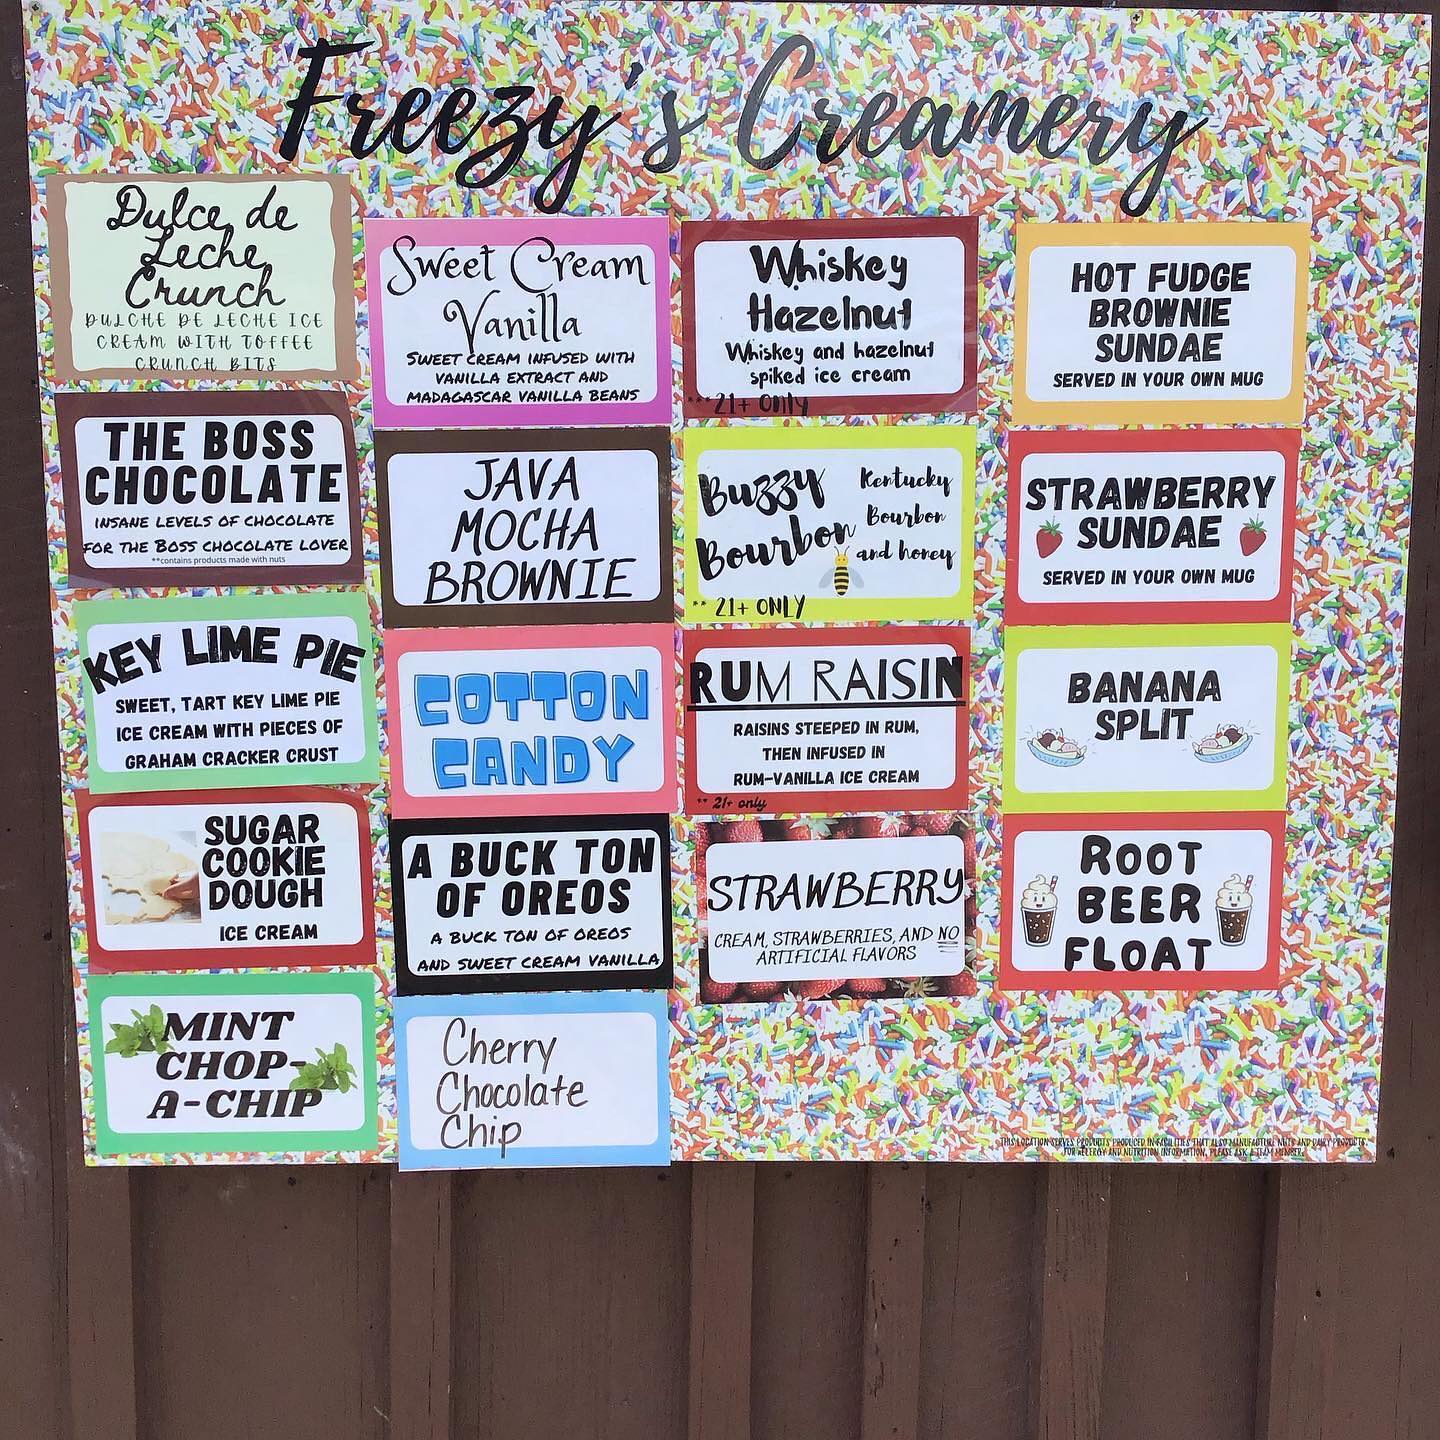 Freezy's Creamery
Dulce de
Leche
Crunch
DULCHE DE LECHE ICE
CREAM WITH TOFFEE
CRUNCH BITS
THE BOSS
CHOCOLATE
INSANE LEVELS OF CHOCOLATE
FOR THE BOSS CHOCOLATE LOVER
**contains products made with nuts
KEY LIME PIE
SWEET, TART KEY LIME PIE
ICE CREAM WITH PIECES OF
GRAHAM CRACKER CRUST
SUGAR
COOKIE
DOUGH
ICE CREAM
MINT
CHOP-
A-CHIP
Sweet Cream
Vanilla
SWEET CREAM INFUSED WITH
VANILLA EXTRACT AND
MADAGASCAR VANILLA BEANS
JAVA
MOCHA
BROWNIE
COTTON
CANDY
A BUCK TON
OF OREOS
A BUCK TON OF OREOS
AND SWEET CREAM VANILLA
Cherry
Chocolate
Chip
Whiskey
Hazelnut
Whiskey and hazelnut
spiked ice cream
***21+ ONLY
Buzzy
Bourbon
Kentucky
Bourbon
and honey
** 21+ ONLY
RUM RAISIN
RAISINS STEEPED IN RUM,
THEN INFUSED IN
RUM-VANILLA ICE CREAM
** 21+ only
STRAWBERRY
CREAM, STRAWBERRIES, AND NO
ARTIFICIAL FLAVORS
HOT FUDGE
BROWNIE
SUNDAE
SERVED IN YOUR OWN MUG
STRAWBERRY
SUNDAE
SERVED IN YOUR OWN MUG
BANANA
SPLIT
ROOT
BEER
FLOAT
THIS LOCATION SERVES PRODUCTS PRODUCED IN FACILITIES THAT ALSO MANUFACTURE NUTS AND DAIRY PRODUCTS.
FOR ALLERGY AND NUTRITION INFORMATION, PLEASE ASK A TEAM MEMBER.